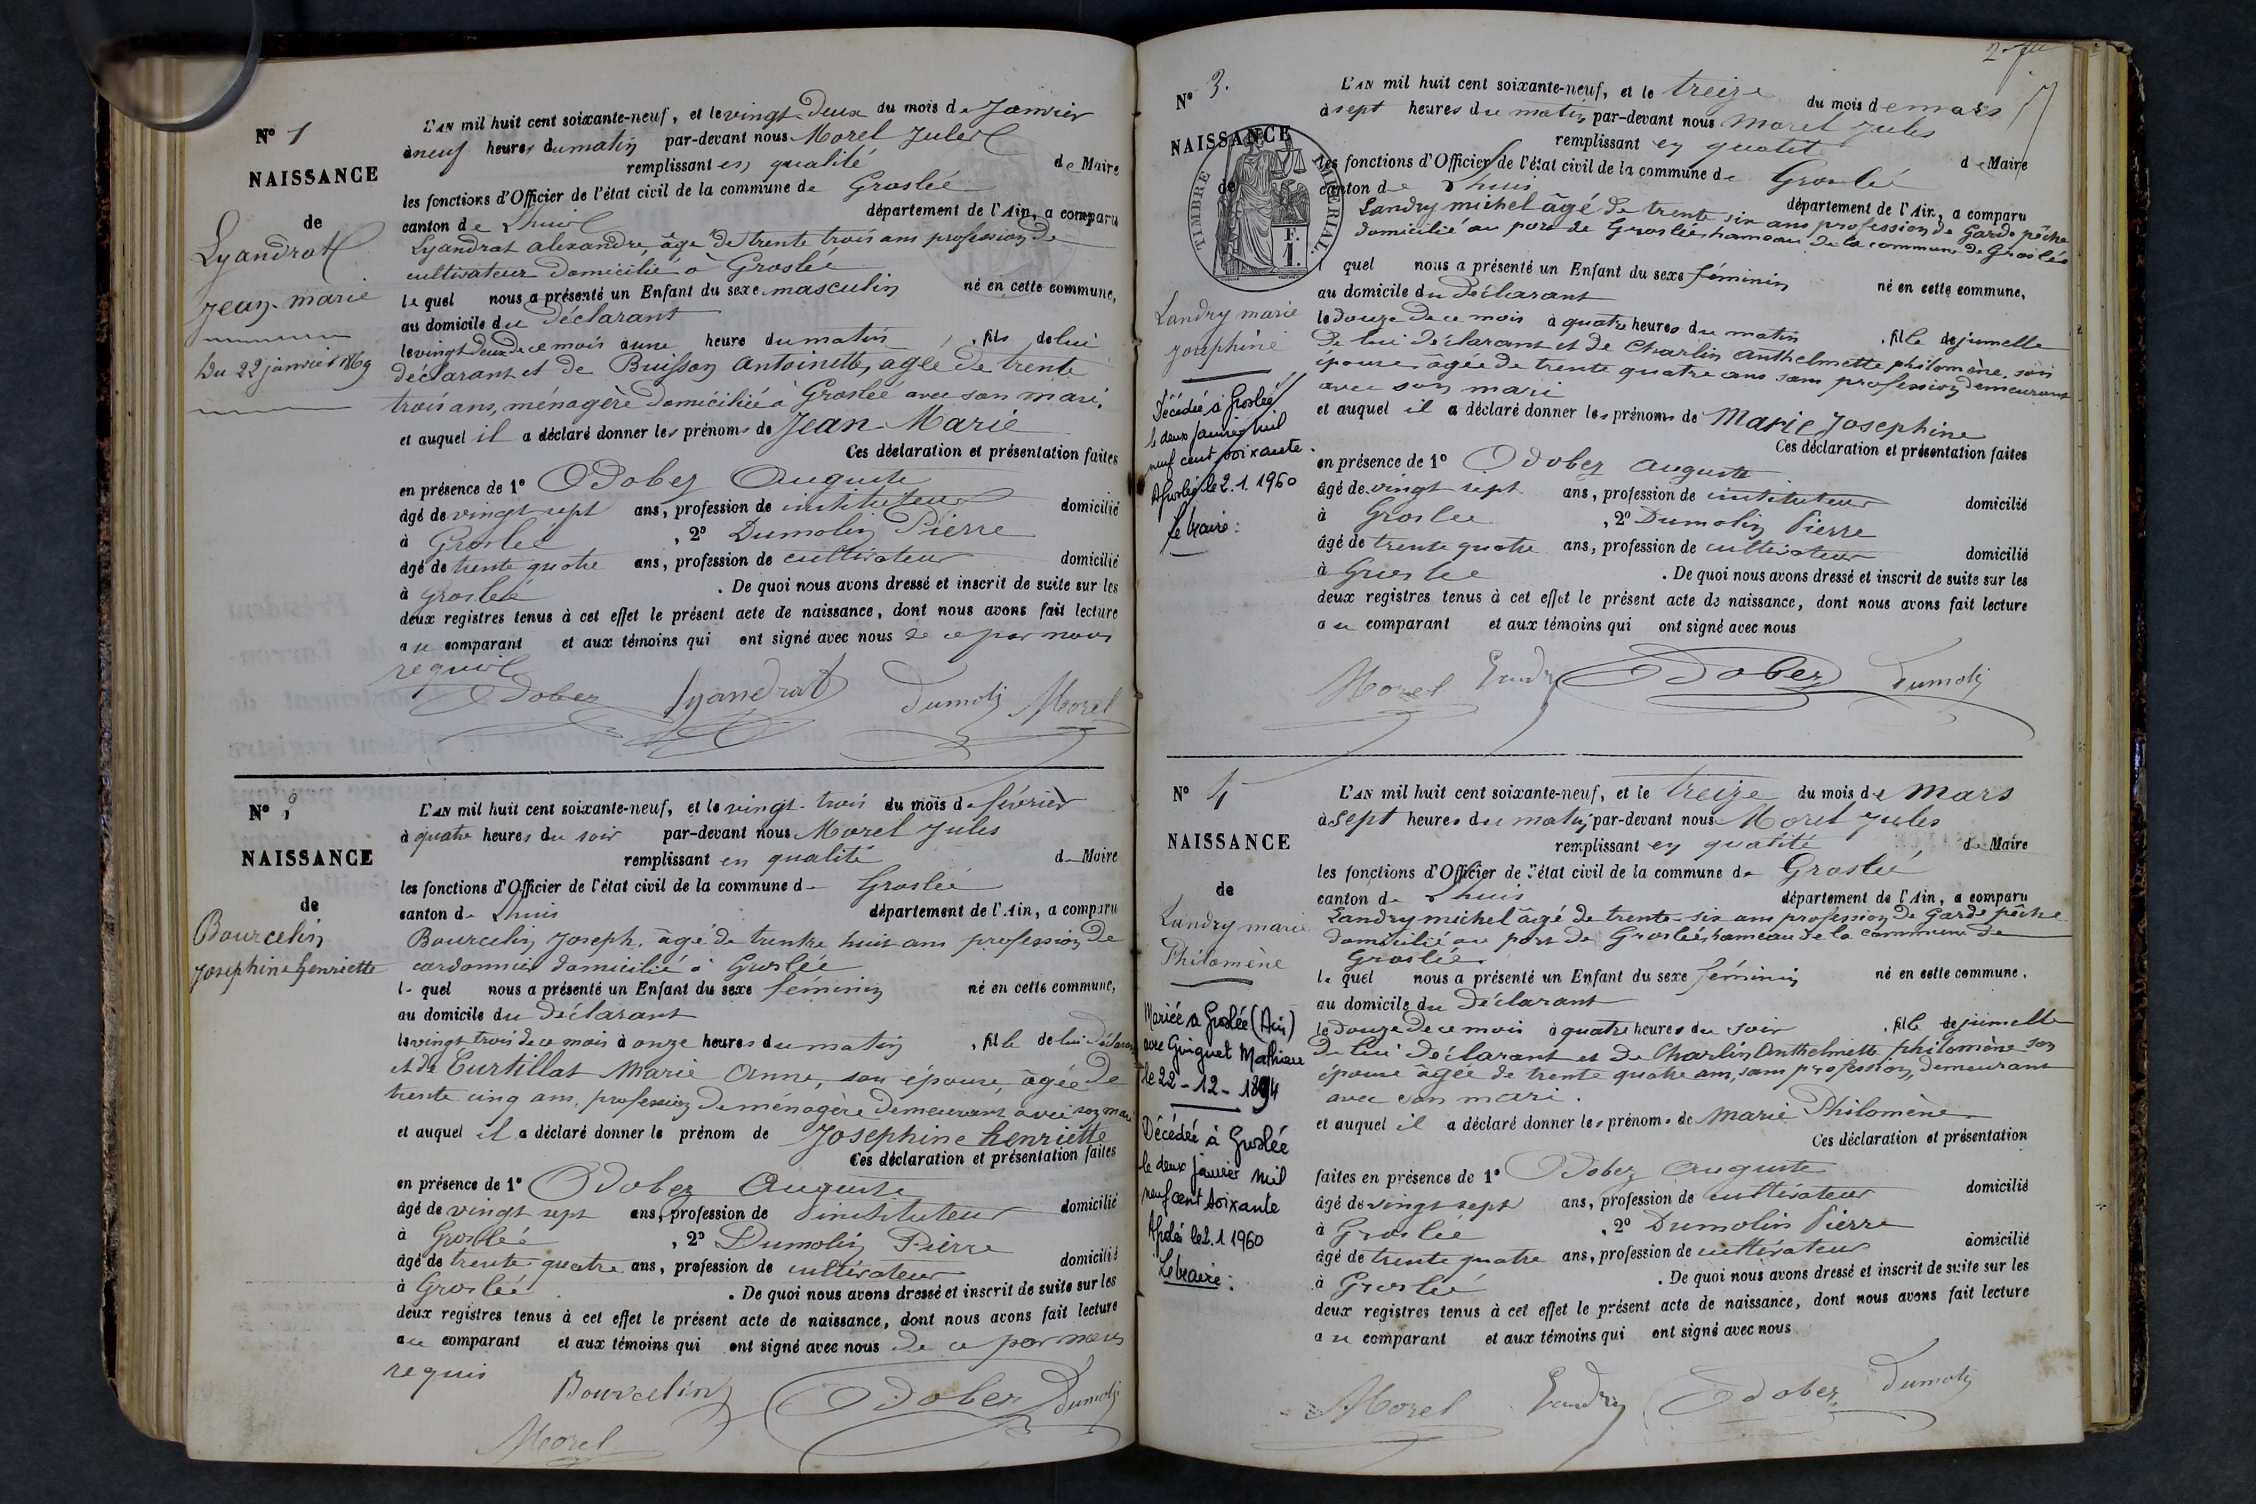 N° 1
NAISSANCE
de
Lyandrat
Jean-marie
Du 22 janvier 1869
L'AN mil huit cent soixante-neuf, et le vingt-Deux du mois de Janvier
à neuf heures du matin par-devant nous Morel Jules
remplissant en qualité de Maire
les fonctions d'Officier de l'état civil de la commune de Groslée
canton de Lhuis département de l'Ain, a comparu
Lyandrat alexandre, âgé de trente trois ans profession de
cultivateur domicilié à Groslée
lequel nous a présenté un Enfant du sexe masculin né en cette commune,
au domicile du déclarant
le vingt deux de ce mois à une heure du matin, fils de lui
déclarant et de Buisson Antoinette, agée de trente
trois ans, ménagère domiciliée à Groslée avec son mari.
et auquel il a déclaré donner les prénoms de Jean-Marie
Ces déclaration et présentation faites
en présence de 1° Odobez Auguste
âgé de vingt sept ans, profession de instituteur domicilié
à Groslée, 2° Dumolin Pierre
âgé de trente quatre ans, profession de cultivateur domicilié
à Groslée. De quoi nous avons dressé et inscrit de suite sur les
deux registres tenus à cet effet le présent acte de naissance, dont nous avons fait lecture
au comparant et aux témoins qui ont signé avec nous de ce par nous
requis
Odobez Lyandrat Dumolin Morel
N° 2
NAISSANCE
de
Bourcelin
Josephine henriette
L'AN mil huit cent soixante-neuf, et le vingt-trois du mois de février
à quatre heures du soir par-devant nous Morel Jules
remplissant en qualité de Maire
les fonctions d'Officier de l'état civil de la commune de Groslée
canton de Lhuis département de l'Ain, a comparu
Bourcelin Joseph, âgé de trente huit ans profession de
cordonnier domicilié à Groslée
lequel nous a présenté un Enfant du sexe feminin né en cette commune,
au domicile du déclarant
le vingt trois de ce mois à onze heures du matin, fille de lui déclarant
et de Curtillat Marie Anne, son épouse, âgée de
trente cinq ans, profession de ménagère demeurant avec son mari
et auquel il a déclaré donner le prénom de Josephine henriette
Ces déclaration et présentation faites
en présence de 1° Odobez Auguste
âgé de vingt sept ans, profession de instituteur domicilié
à Groslée, 2° Dumolin Pierre
âgé de trente quatre ans, profession de cultivateur domicilié
à Groslée. De quoi nous avons dressé et inscrit de suite sur les
deux registres tenus à cet effet le présent acte de naissance, dont nous avons fait lecture
au comparant et aux témoins qui ont signé avec nous de ce par nous
requis
Bourcelin Odobez Dumolin
Morel
N° 3.
NAISSANCE
de
TIMBRE IMPÉRIAL.
F.
1.
Landry marie
josephine
Décédée à Groslée
le deux janvier mil
neuf cent soixante.
A Groslée le 2.1.1960
Le Maire:
L'AN mil huit cent soixante-neuf, et le treize du mois de mars
à sept heures du matin par-devant nous Morel Jules
remplissant en qualité de Maire
les fonctions d'Officier de l'état civil de la commune de Groslée
canton de Lhuis département de l'Ain, a comparu
Landry michel âgé de trente six ans profession de Garde pêche
domicilié au port de Groslée, hameau de la commune de Groslée
lequel nous a présenté un Enfant du sexe féminin né en cette commune,
au domicile du déclarant
le douze de ce mois à quatre heures du matin, fille de jumelle
De lui déclarant et de Charlin Anthelmette philomène, son
épouse âgée de trente quatre ans sans profession demeurant
avec son mari
et auquel il a déclaré donner les prénoms de Marie Josephine
Ces déclaration et présentation faites
en présence de 1° Odobez auguste
âgé de vingt sept ans, profession de instituteur domicilié
à Groslée, 2° Dumolin Pierre
âgé de trente quatre ans, profession de cultivateur domicilié
à Groslée. De quoi nous avons dressé et inscrit de suite sur les
deux registres tenus à cet effet le présent acte de naissance, dont nous avons fait lecture
au comparant et aux témoins qui ont signé avec nous
Morel Landry Odobez Dumolin
N° 4
NAISSANCE
de
Landry marie
Philomène
Mariée à Groslée (Ain)
avec Guiguet Mathieu
le 22-12-1894
Décédée à Groslée
le deux janvier mil
neuf cent soixante
le 2.1.1960
Le Maire:
L'AN mil huit cent soixante-neuf, et le treize du mois de Mars
à sept heures du matin par-devant nous Morel Jules
remplissant en qualité de Maire
les fonctions d'Officier de l'état civil de la commune de Groslée
canton de Lhuis département de l'Ain, a comparu
Landry michel âgé de trente-six ans profession de Garde pêche
domicilié au port de Groslée, hameau de la commune de
Groslée
lequel nous a présenté un Enfant du sexe féminin né en cette commune.
au domicile du Déclarant
le douze de ce mois à quatre heures du soir, fille de jumelle
De lui déclarant et de Charlin Anthelmette philomène son
épouse âgée de trente quatre ans, sans profession, demeurant
avec son mari.
et auquel il a déclaré donner les prénoms de Marie Philomène
Ces déclaration et présentation
faites en présence de 1° Odobez Auguste
âgé de vingt sept ans, profession de cultivateur domicilié
à Groslée, 2° Dumolin Pierre
âgé de trente quatre ans, profession de cultivateur domicilié
à Groslée. De quoi nous avons dressé et inscrit de suite sur les
deux registres tenus à cet effet le présent acte de naissance, dont nous avons fait lecture
au comparant et aux témoins qui ont signé avec nous
Morel Landry Odobez Dumolin